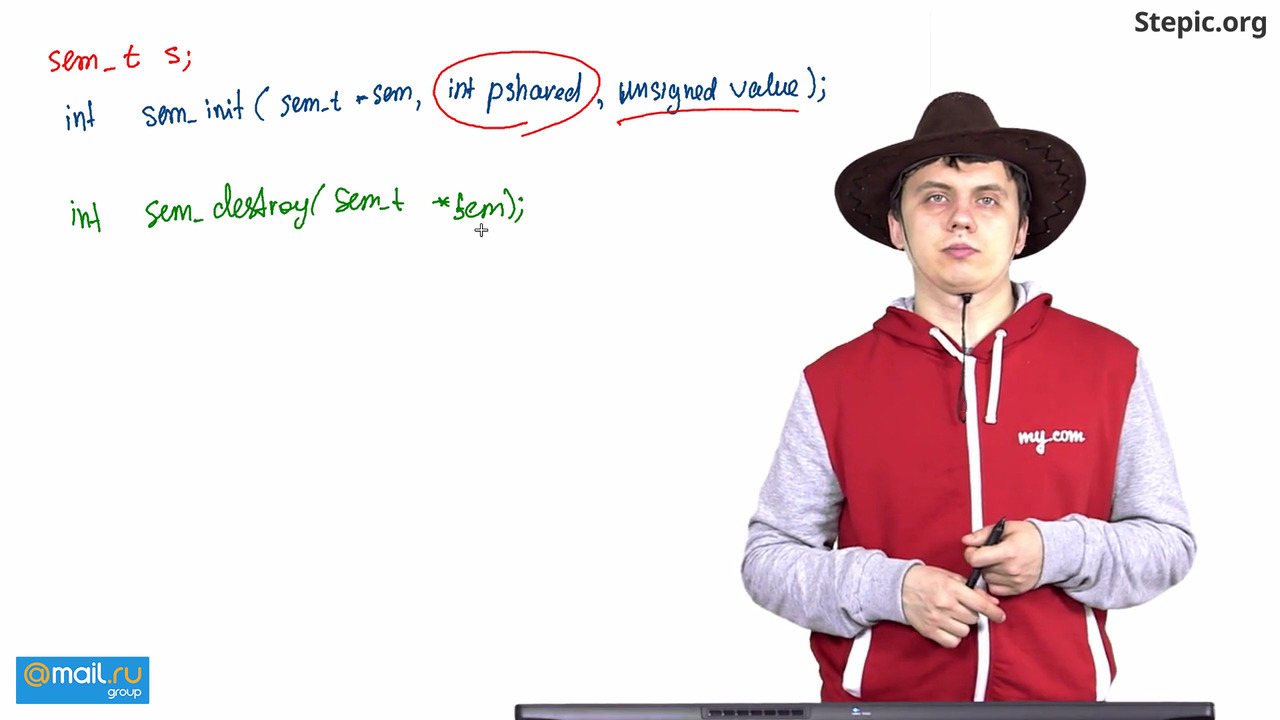 Stepic.org
sem_t s;
int sem_init( sem_t *sem, int pshared, unsigned value);
int sem_destroy( sem_t *sem);
my.com
@mail.ru
group